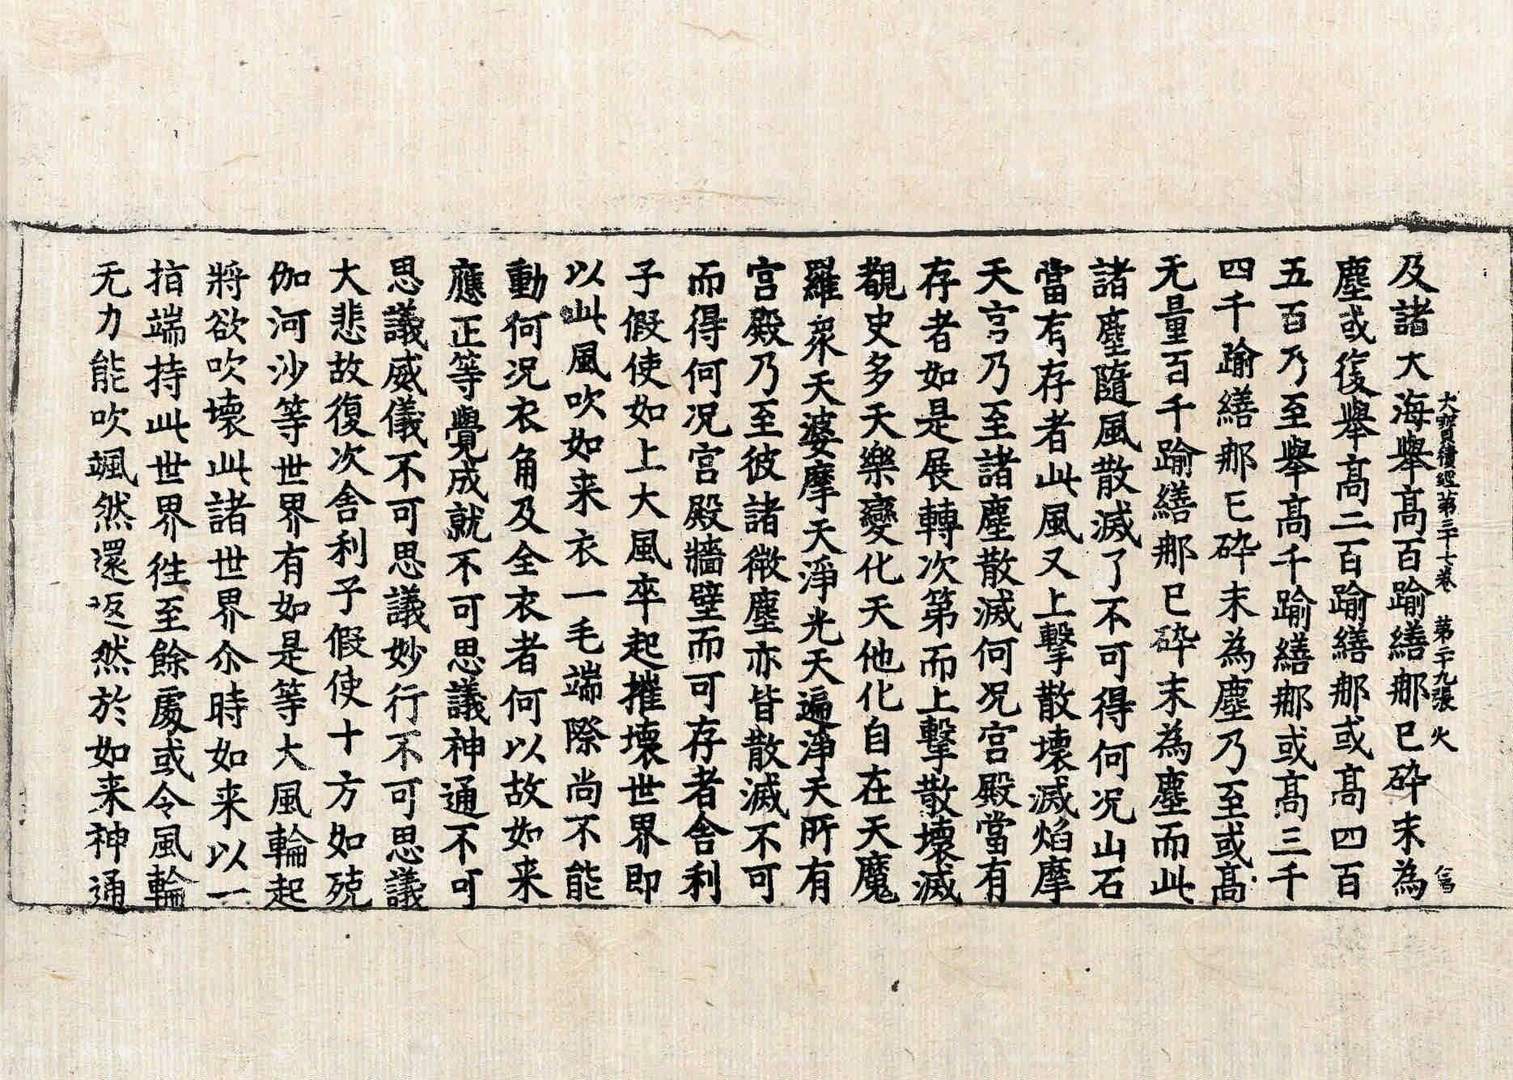 大寶積經第三十七卷　第二十九張　火
及諸大海舉髙百踰繕那已碎末為
塵或復舉髙二百踰繕那或髙四百
五百乃至舉髙千踰繕那或髙三千
四千踰繕那已碎末為塵乃至或髙
无量百千踰繕那已碎末為塵而此
諸塵隨風散滅了不可得何況山石
當有存者此風又上擊散壞滅焰摩
天宫乃至諸塵散滅何况宫殿當有
存者如是展轉次第而上擊散壞滅
覩史多天樂變化天他化自在天魔
羅衆天婆摩天淨光天遍淨天所有
宫殿乃至彼諸微塵亦皆散滅不可
而得何况宫殿牆壁而可存者舍利
子假使如上大風卒起摧壞世界即
以此風吹如来衣一毛端際尚不能
動何况衣角及全衣者何以故如来
應正等覺成就不可思議神通不可
思議威儀不可思議妙行不可思議
大悲故復次舍利子假使十方如殑
伽河沙等世界有如是等大風輪起
將欲吹壞此諸世界尒時如来以一
指端持此世界徃至餘處或令風輪
无力能吹颯然還返然於如来神通